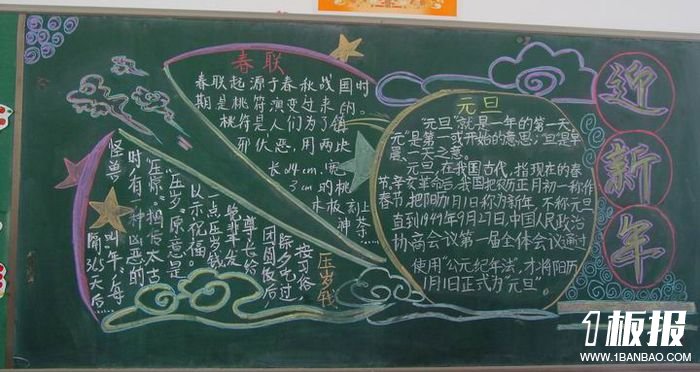 春联
春联起源于春秋战国时
期是桃符演变过来的,
桃符是人们为了镇
邪伏恶,用两块
长04cm,宽
3cm的桃
木板刻上
神荼…
元旦
"元旦"就是一年的第一天,
元"是第一或开始的意思;"旦是早
晨、一天之意。
元旦,在我国古代,指现在的春
节,辛亥革命后,我国把农历正月初一称作
春节,把阳历1月1日称为新年,不称元旦
直到1949年9月27日,中国人民政治
协商会议第一届全体会议通过
使用"公元纪年法",才将阳历
1月1日正式为元旦"
迎
新
年
压岁钱
按习俗,
除夕吃过
团圆饭后
尊长给
晚辈分发
一点压岁钱
以示祝福
"压岁"原意是
"压惊"相传太古
时,有一种凶恶的
怪兽
叫"年",每
隔365天后…
1板报
WWW.1BANBAO.COM